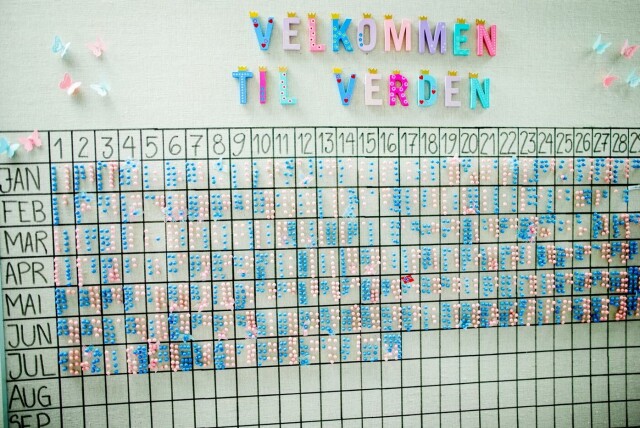 VELKOMMEN
TIL VERDEN
1 2 3 4 5 6 7 8 9 10 11 12 13 14 15 16 17 18 19 20 21 22 23 24 25 26 27 28 29
JAN
FEB
MAR
APR
MAI
JUN
JUL
AUG
SEP